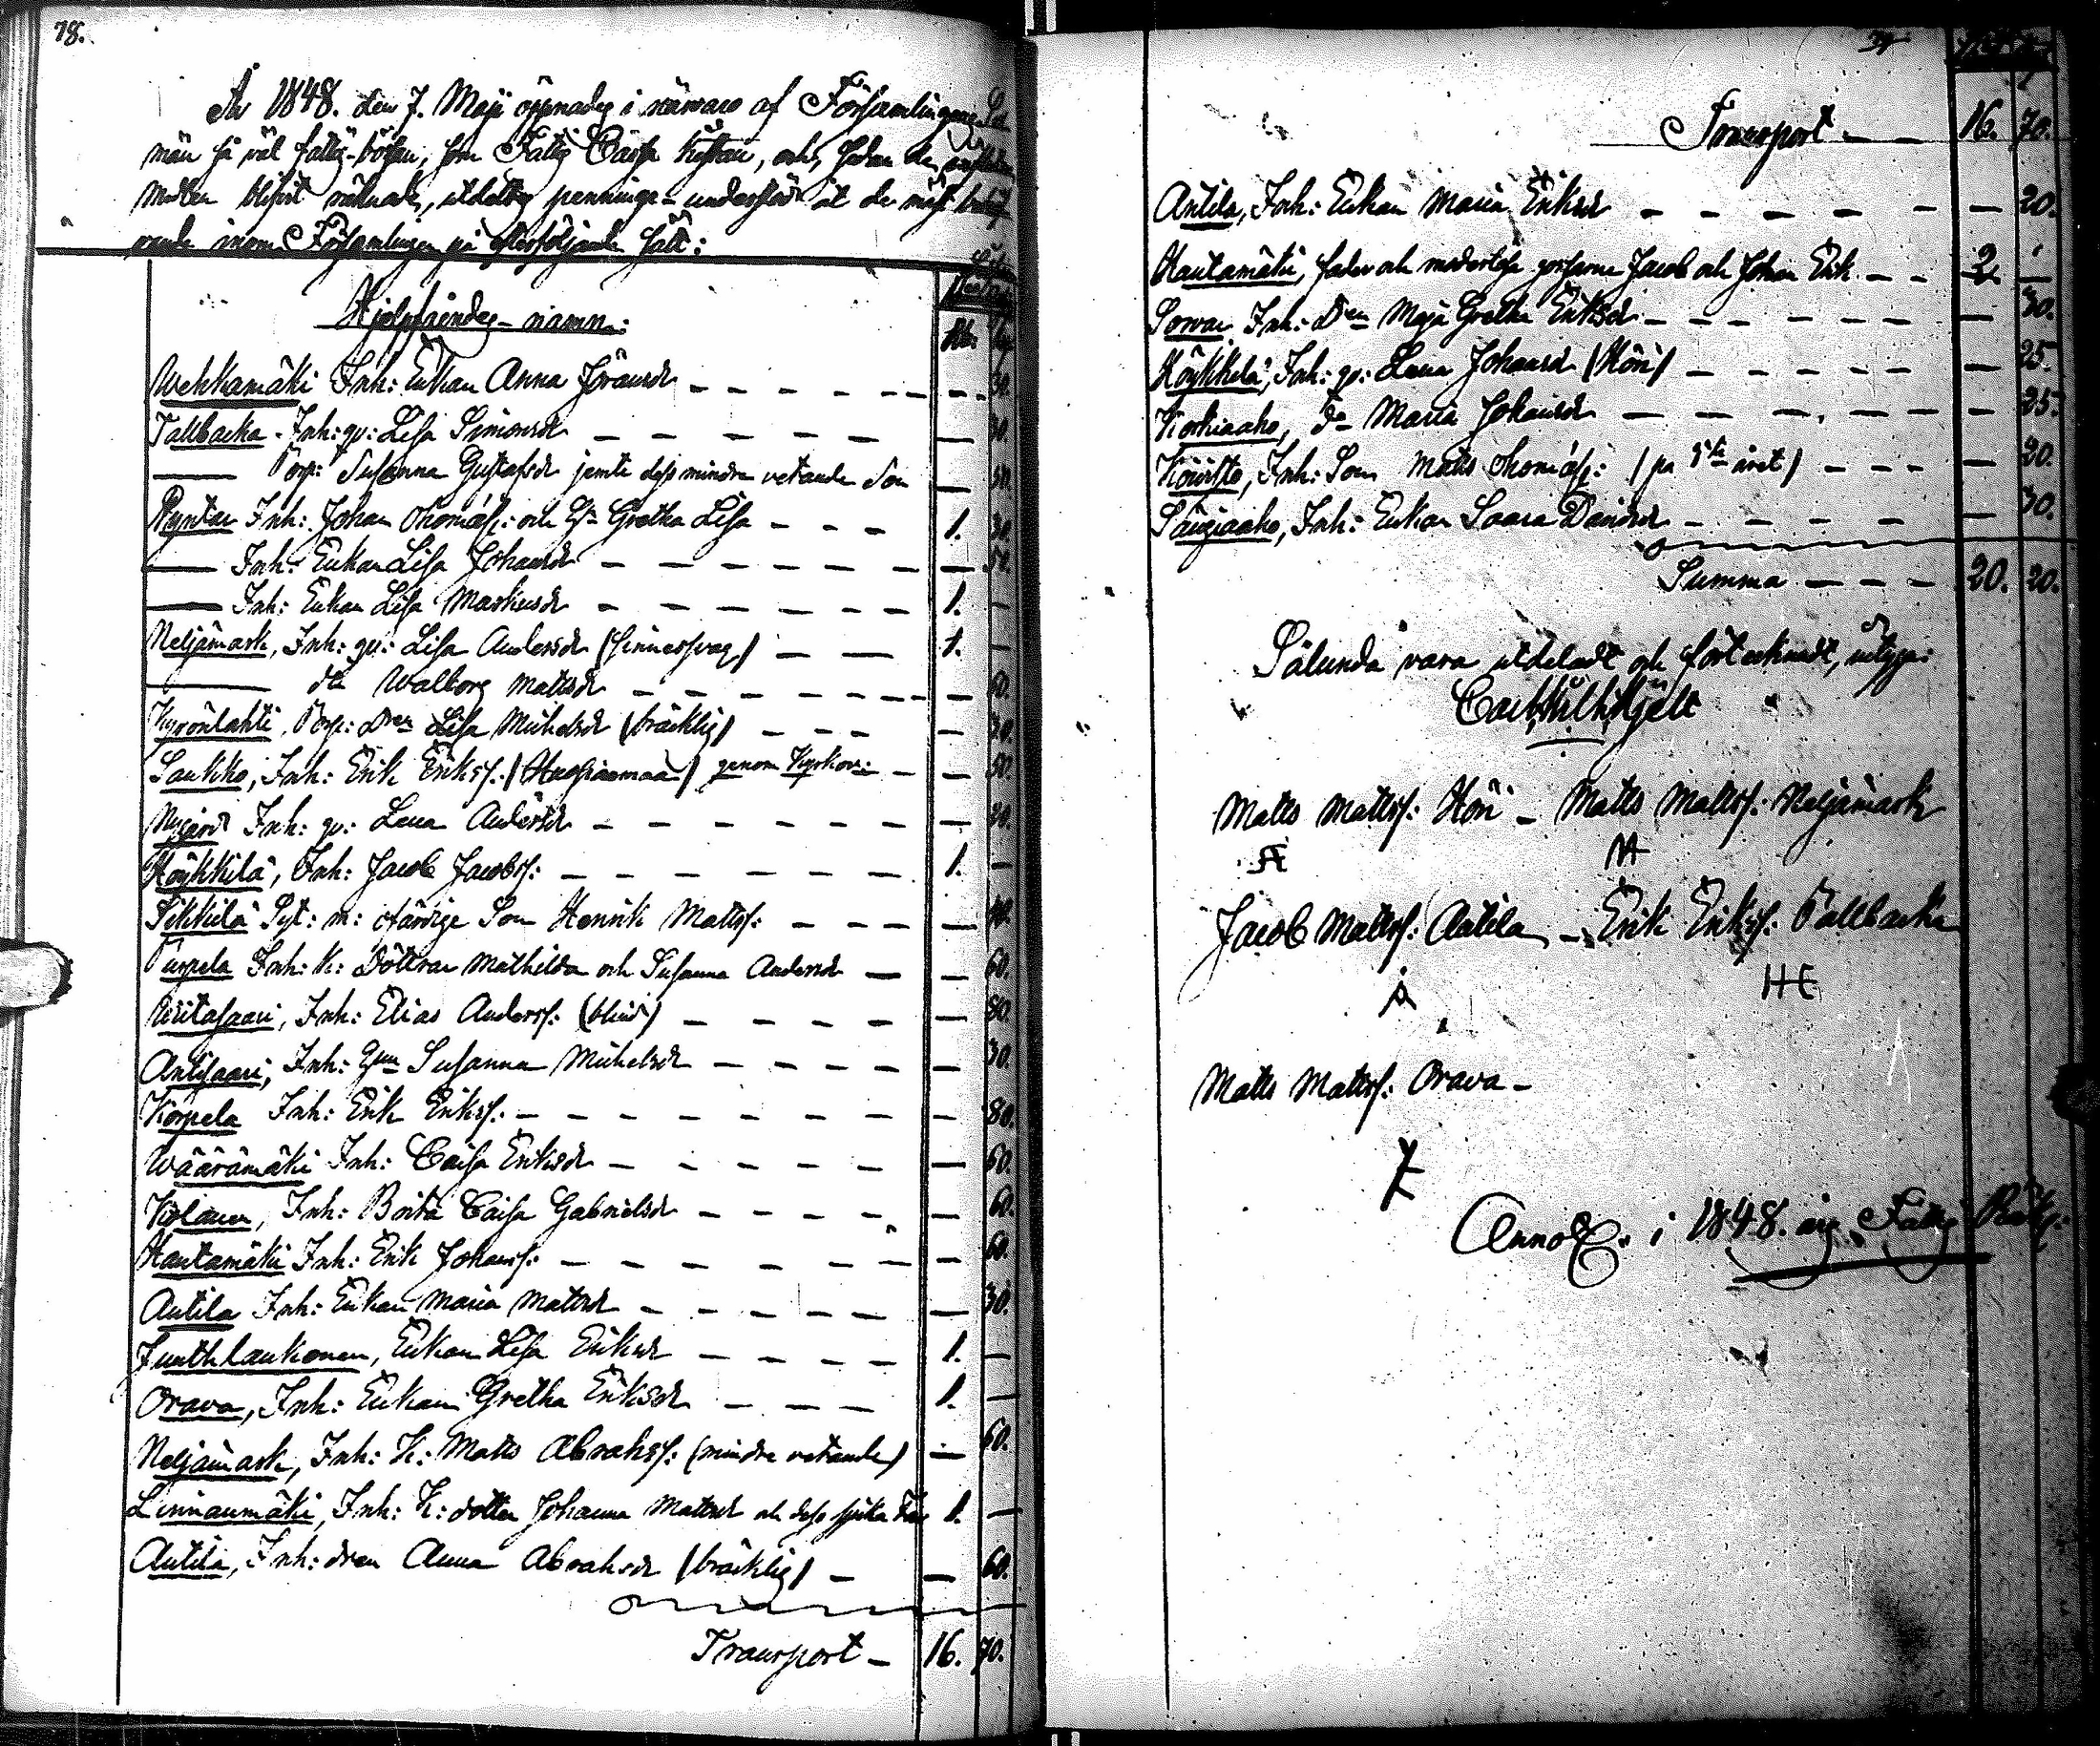 78.
År 1848. den 7. Maji öppnades i närvaro af Församlingens
män så väl fattig-bössan, som Fattig Cassa Kistan, och, sedan de
medlen blifvit räknade, utdeltes penninge-understöd åt de mäst
vande inom Församlingen på efterföljande sätt:
Hjelptagandes namn:
Wehkamäki Inh: Enkan Anna Jöransdr — 30.
Tallbacka Inh: qv: Lisa Simonsdr — 30.
— Torp: Susanna Gustafsdr jemte dess mindre vetande Son — 50.
Pyntar Inh: Johan Thomass: och Hu Gretha Lisa — 1. 30.
— Inh: Enkan Lisa Johansdr — 50.
— Inh: Enkan Lisa Markusdr — 1. —
Neljämark, Inh: qv: Lisa Andersdr (sinnessvag) — 1. —
— dto Walborg Mattsdr — 60.
Kyrönlahti, Torp: Dren Lisa Michelsdr (bräcklig) — 20.
Saukko, Inh: Erik Erikss: genom Kyrkov: — 50.
Nygård Inh: qv: Lena Andersdr — 40.
Höykkilä, Inh: Jacob Jacobss: 1. —
Sikkilä Syt: m: Son Henrik Mattss: — 40.
Purpela Inh: K: Döttrar Mathilda och Susanna Andersdr — 60.
Wiitasaari, Inh: Elias Anderss: (blind) — 80.
Antisaari, Inh: Susanna Michelsdr — 30.
Korpela Inh: Erik Erikss: — 80.
Wäärämäki Inh: Caisa Eriksdr — 60.
Kolanen, Inh: Brita Caisa Gabrielsdr — 60.
Hautamäki Inh: Erik Johanss: — 60.
Antila Inh: Enkan Maria Mattsdr — 30.
Junthlaukonen, Enkan Lisa Eriksdr 1. —
Orava, Inh: Enkan Gretha Eriksdr 1. —
Neljämark, Inh: K: Matts Abrahss: (mindre vetande) — 60.
Linnanmäki, Inh: K: dotter Johanna Mattsdr och dess sjuka Far 1. —
Antila, Inh: dren Anna Abrahsdr (bräcklig) — 60.
Transport — 16. 70.
Transport — 16. 70.
Antila, Inh: Enkan Maria Eriksdr — 20.
Hautamäki, fader och moderlösa gossarne Jacob och Johan Erik 2. —
Sorvar Inh: Dren Maja Gretha Eriksdr — 30.
Höykkilä, Inh: qv: Lena Johansdr (Höri) — 25.
Koskiaaho, do Maria Johansdr — 25.
Inh: Son Matts Thomass: (på 9de året) — 20.
Inh: Enkan Saara Danielsdr — 30.
Summa — 20. 20.
Sålunda vara utdeladt och förtecknadt, intyga:
Carl Hjelt
Matts Mattss: Höri — Matts Mattss: Neljämark
Jacob Mattss: Antila — Erik Erikss: Tallbacka
HE
Matts Mattss: Orava —
i 1848. års Fattig Räkg: